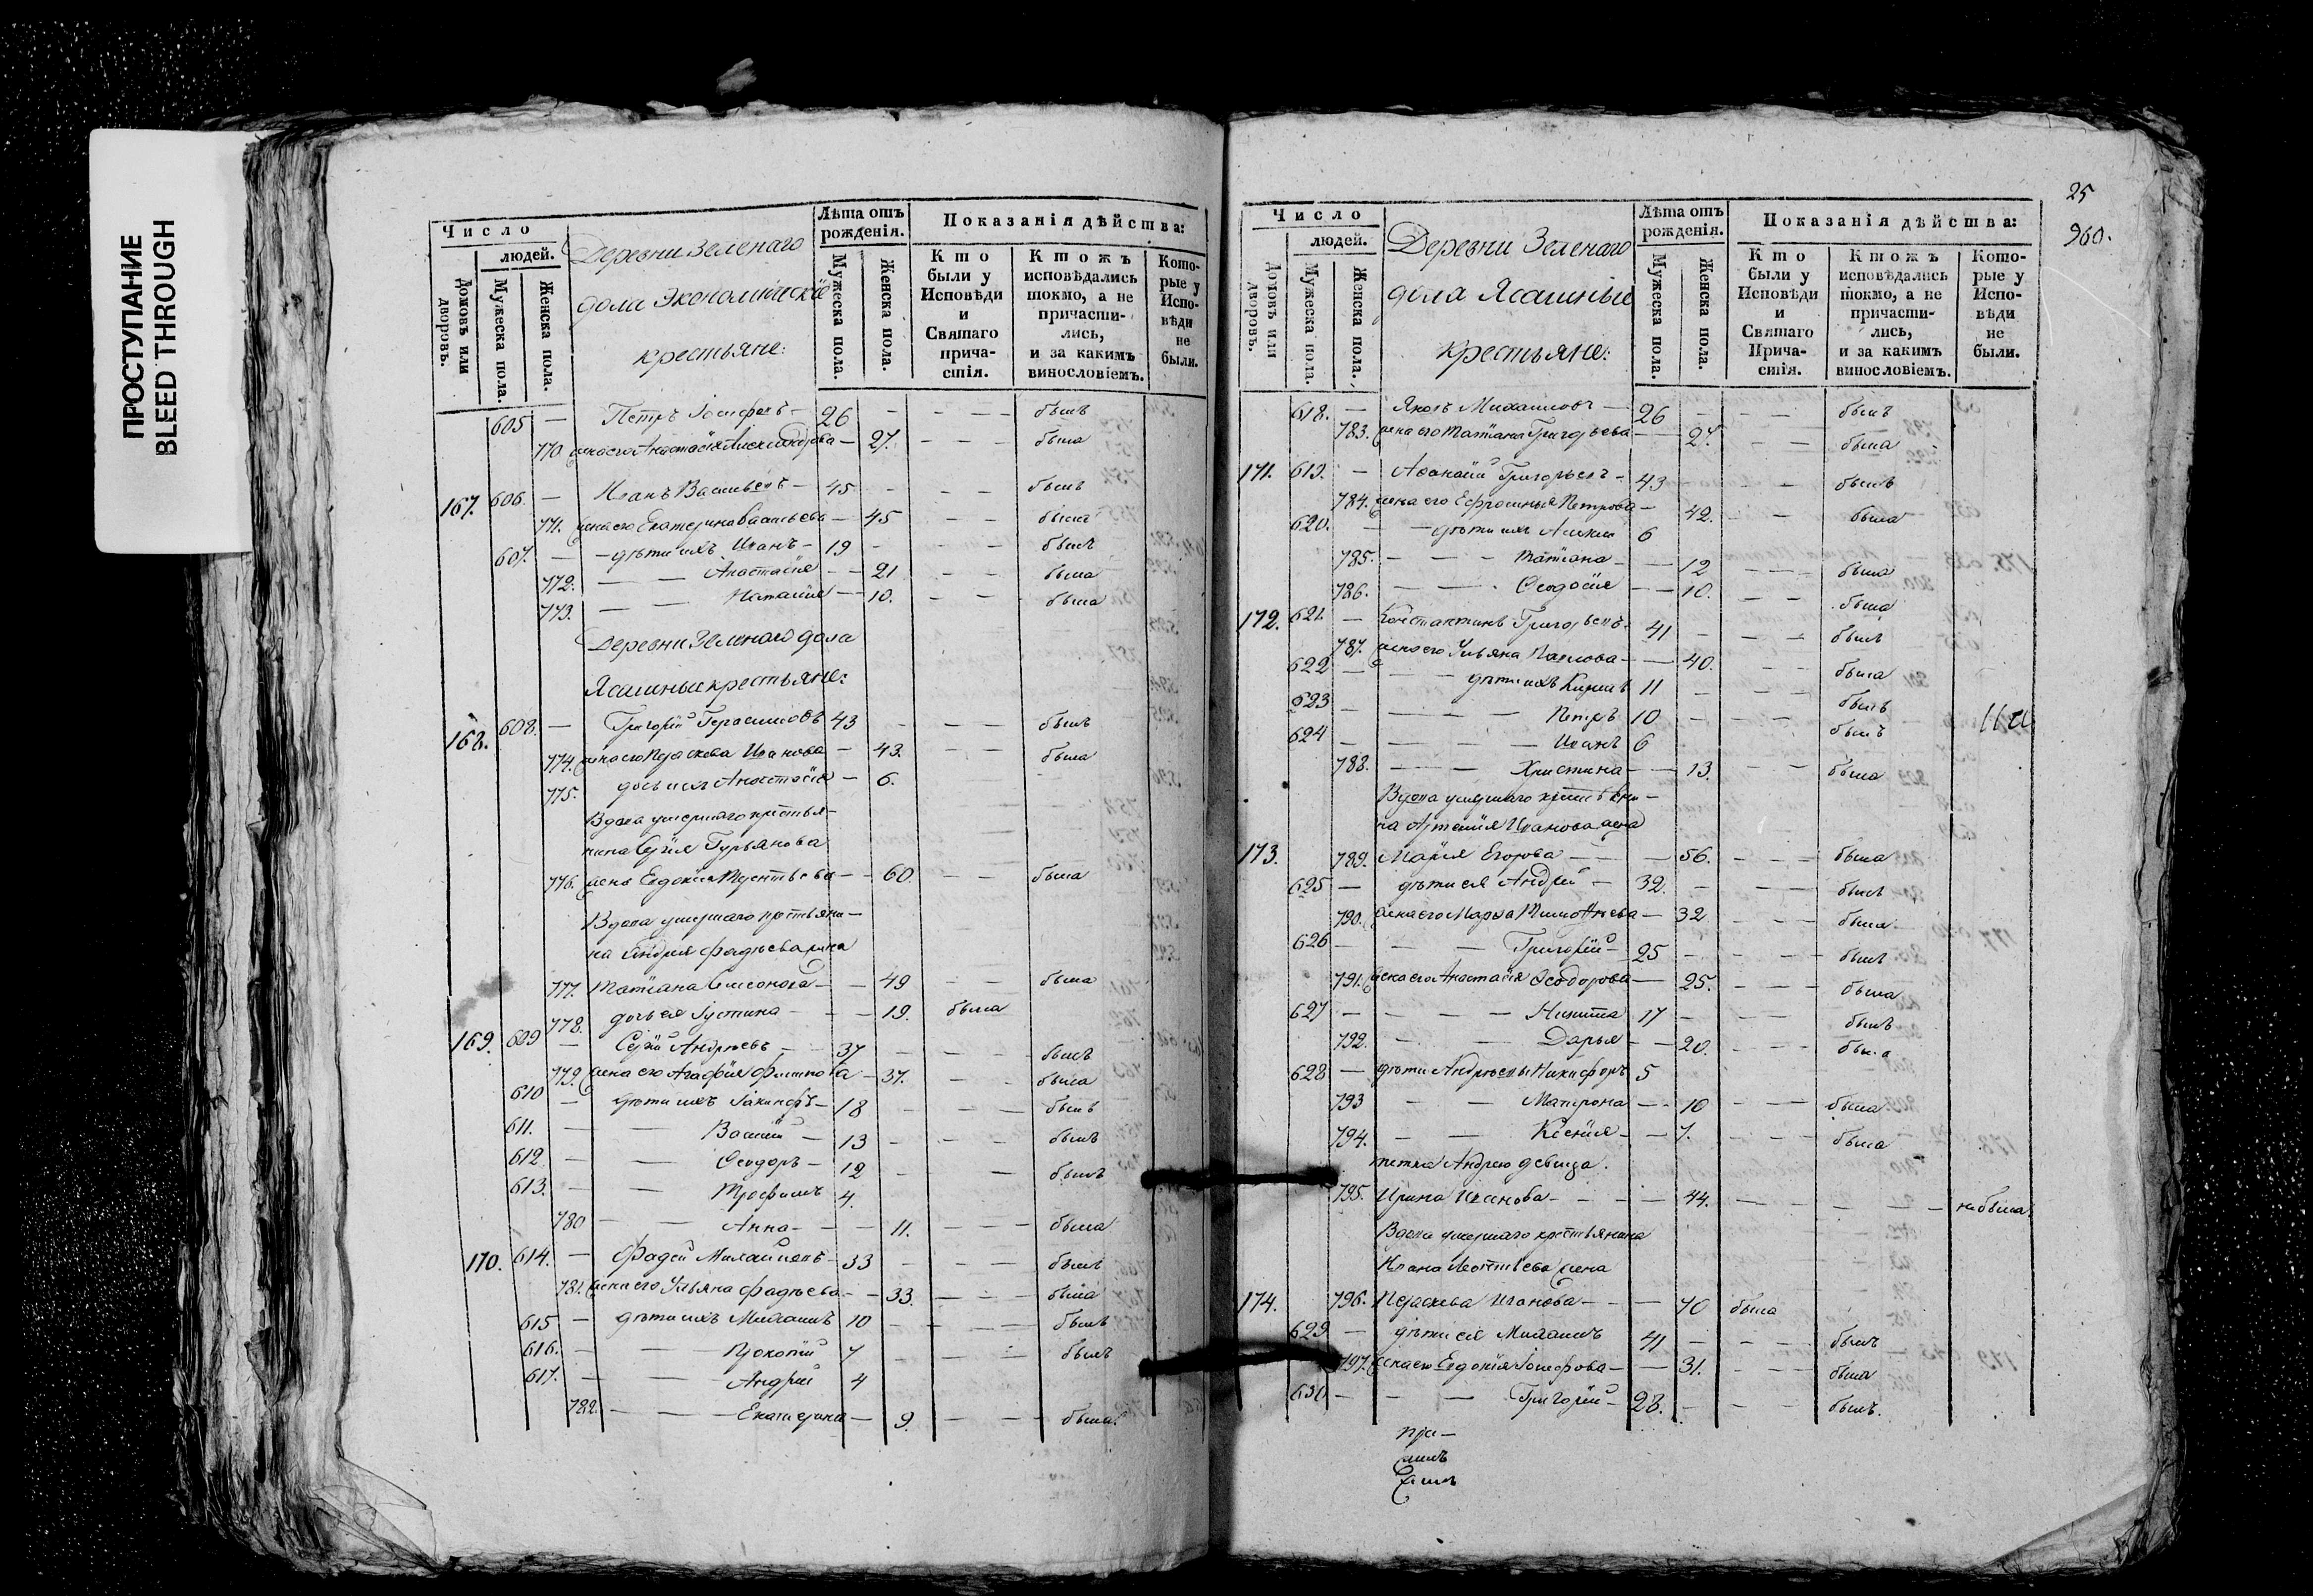 ПРОСТУПАНИЕ
BLEED THROUGH
Число
людей.
Домовъ или дворовъ.
Мужеска пола.
Женска пола.
Деревни Зеленаго
дола Экономическіе
крестьяне:
Лѣта отъ рожденія.
Мужеска пола.
Женска пола.
Показанія дѣйства:
Кто были у Исповѣди и Святаго причастія.
Ктожъ исповѣдались токмо, а не причастились, и за какимъ винословіемъ.
Которые у Исповѣди не были.
605 — Петръ Іосифовъ — 26 - - - - былъ
770 жена его Анастасія Александрова — 27. - - - была
167. 606. — Иванъ Васильевъ — 45 - - - былъ
771. жена его Екатерина Васильева — 45 - - была
607. — дѣти ихъ Иванъ — 19 - - былъ
772. — — Анастасія — — 21 - - была
773. — — Наталія — 10. - - была
Деревни Зеленаго дола
Ясашные крестьяне:
168. 608. — Григорій Герасимовъ 43 - - - былъ
774. жена его Параскева Иванова — 43. - - была
775. дочь ихъ Анастасія — 6.
Вдова умершаго крестья-
нина Сергія Гурьянова
776. жена Евдокія Терентьева — — 60. - - была
Вдова умершаго крестьяни-
на Андрея Фадѣева жена
777. Татіана Симонова — — 49 - - была
778. дочь ея Іустина - - — 19. была
169. 609 — Сергій Андрѣевъ — 37 - - - былъ
779. жена его Агафія Филипова — 37. - - была
610 — дѣти ихъ Іакинфъ — 18 - - - былъ
611. — — Василій — 13 - - - былъ
612 — — Ѳеодоръ — 12 - - былъ
613. — — Трофимъ 4.
780 — — Анна — — — 11. - - - была
170. 614. — Фадей Михайловъ — 33 - - - былъ
781. жена его Ульяна Фадѣева — — 33. - - - была
615 — дѣти ихъ Михаилъ 10 - - - былъ
616. — — Прокопій 7 - - - былъ
617. — — Андрей 4
782. — — — Екатерина — 9. - - была.
25
960.
Число
людей.
Домовъ или дворовъ.
Мужеска пола.
Женска пола.
Деревни Зеленаго
дола Ясашные
крестьяне:
Лѣта отъ рожденія.
Мужеска пола.
Женска пола.
Показанія дѣйства:
Кто были у Исповѣди и Святаго Причастія.
Ктожъ исповѣдались токмо, а не причастились, и за какимъ винословіемъ.
Которые у Исповѣди не были.
618. — Яковъ Михаиловъ — 26 - - - былъ
783. жена его Татіана Григорьева — — 27. - - была
171. 619. — Аѳанасій Григорьевъ — 43 - - - былъ
784. жена его Ефросинья Петрова — 42. - - была
620. — — дѣти ихъ 6
785. — — — Татіана — — 12 - - - была
786. — — — Ѳеодосія — — 10. - - была
172. 621. — Константинъ Григорьевъ. 41 - - - былъ
787. жена его Ульяна Павлова — — 40. - - - была
622 — — — дѣти ихъ 11 - - - былъ
623 — — — — Петръ 10 - - - былъ
624 — — — — Иванъ 6
788. — — — Христина — — 13. - - была
Вдова умершаго крестьяни-
на Артемія Иванова жена
173. 789. Марія Егорова — — — 56. - - - была
625 — дѣти ея Андрей — 32. - - - былъ
790. жена его Марѳа Тимоѳѣева — 32 - - - была
626 — — — Григорій — 25 - - - былъ
791. жена его Анастасія Ѳеодорова — 25. - - - была
627 — — — — Никита 17 - - - былъ
792. — — Дарья — — 20. - - - была
628 — дѣти Андрѣевы Никифоръ 5
793 — — Матрона — — 10 - - - была
794. — — Ксенія — — 7. - - - была
тетка Андрею девица.
795. Ирина Иванова — — — 44. — — — — не была.
Вдова умершаго крестьянина
Ивана Леонтьева жена
174. 796. Параскева Иванова — — — 70 была
629 — дѣти ея Михаилъ 41 - - - былъ
797. жена его Евдокія Іосифова — — 31. - - была
630. — — — Григорій — 28. - - - былъ.